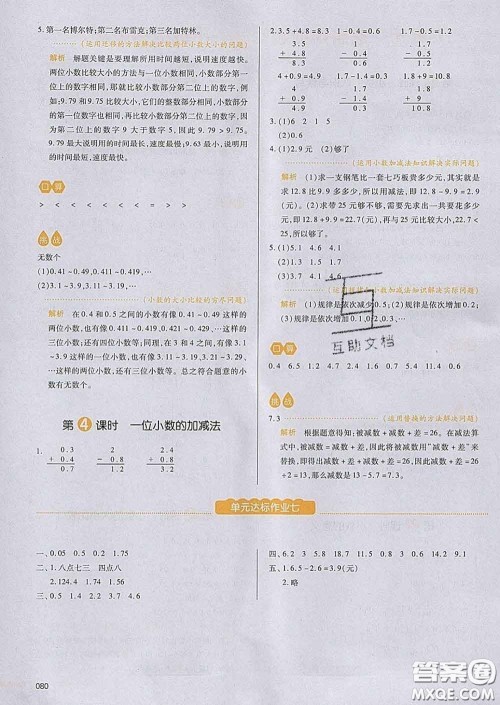 5. 第一名博尔特;第二名布雷克;第三名加特林。
(运用迁移的方法解决比较两位小数大小的问题)
解析 解题关键是要理解所用时间越短,说明速度越快。
两位小数比较大小的方法与一位小数相同,小数部分第
一位上的数字相同,再比较小数部分第二位上的数字,例
如;9.79 和 9.75 进行比较,它们的整数部分和小数部分
第一位上的数字都相同,就比较小数部分第二位上的数,
因为第二位上的数字 9 大于数字 5,因此 9.79 > 9.75。
数大就说明用的时间长,速度慢;9.63 最小,说明所用的
时间最短,速度最快。
口算
> < < < < > < > <
挑战
无数个
(1)0.41 0.49 0.411 0.419,…
(2)3.1 3.9 3.11 3.19,…
(小数的大小比较的穷尽问题)
解析 在 0.4 和 0.5 之间的小数有像 0.41 0.49 这样的
两位小数,还有像 0.411 0.419 这样的三位小数……在
3 和 4 之间的小数有像 3.1 3.9 这样的一位小数,还有
像 3.11 3.19 这样的两位小数,还有像 3.111 3.119
这样的三位小数,还有四位小数等。总之符合题意的小数
有无数个。
第 4 课时 一位小数的加减法
1. 0.3 1.2 1.8
+ 0.4 - 0.8 - 0.4
0.7 0.4 1.4
2. 3.5 4.8 8.3 4 1.9 2.1 1.8 1.3 3.1
3.5 4.0 1.8
+ 4.8 - 1.9 + 1.3
8.3 2.1 3.1
4 0.9 4.9 10 8.6 1.4 7.7 1.8 5.9
4 10.0 7.7
+ 0.9 - 8.6 - 1.8
4.9 1.4 5.9
3. (1)2 (2)0.6
4. (1)2.9元 (2)2.3元 (3)够了
(运用小数加减法知识解决实际问题)
解析 (1)求一支钢笔比一套七巧板贵多少元,其实就是
求 12.8 比 9.9 多多少,所以用减法计算,12.8 - 9.9 =
2.9(元)。(2)求带 25 元够不够,先求出一共要花多少
元,即 12.8 + 9.9 = 22.7(元),再与 25 元比较大小,22.7 <
25,所以够了。
5. (1)5.1 4.6 (2)0.6 0.8
(3)1.2 1.5 1.7 (4)3.1 4.1 4.6
(运用小数加减法知识解决实际问题)
解析 (1)规律是依次减少 0.5;(2)规律是依次增加 0.2;
(3)规律是依次增加 0.1,0.2,0.3,…
口算
0.4 6.5 1.2 1.1 2.2 9.2 4 1.8 11.4 0.6
挑战
7.3 (运用替换的方法解决问题)
解析 根据题意得知:被减数 + 减数 + 差 = 26。在减法算
式中,被减数 = 减数 + 差,因此可以用"减数 + 差"来
替换,即得到三个未知数的和是 26……
单元达标作业七
一、0.05 0.5 2 1.75
二、1. 八点七三 四点八
2. 124.4 7.8 3. (1)1.6 (2)1.36
三、0.5 1.4 2.4 1.2 1.9 4.2 4.7 4.8
四、6.2 3 5.8 11.1 4.8 2.4 14.2 9.1
五、1. 6.5 - 2.6 = 3.9(元)
2. 略
080
互助文档
答案圈
MXQE.COM